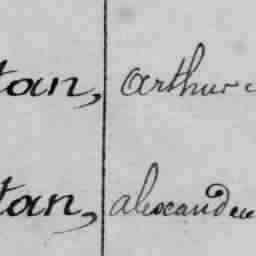 tan, Arthur
tan, alexandre